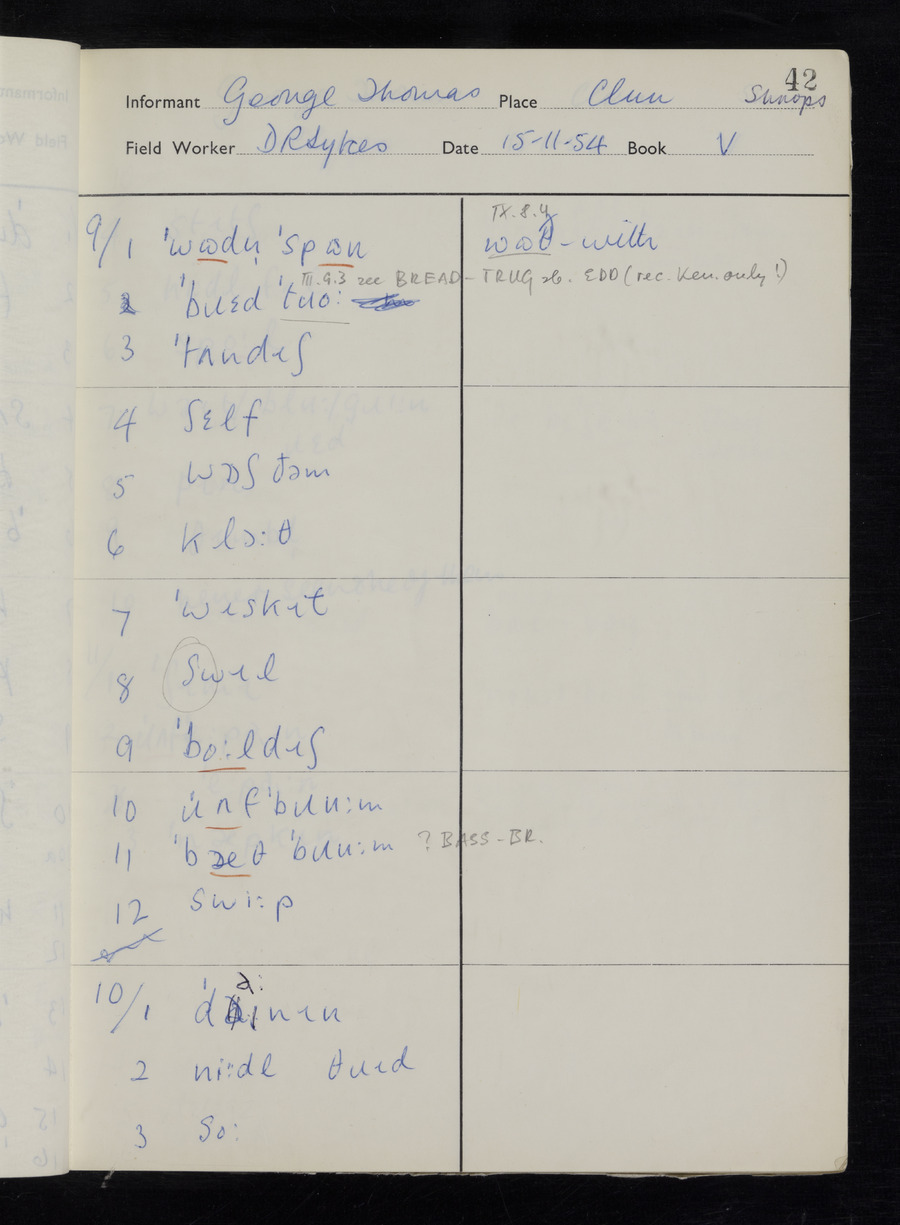 42
Informant George Thomas Place Clun Shrops
Field Worker DRSykes Date 15-11-54 Book V
9/1 ˈwɷdn̩ ˈspɷn
IX.8.4
wɷθ - with
2 ˈbɹɛd ˈtɹo:
III.9.3 see BREAD-TRUG sb. EDD (rec. Ken. only!)
3 ˈtʌndɪʃ
4 ʃɛlf
5 wɒʃ ðəm
6 klɔ:θ
7 ˈwɪskɪt
8 swɪl
9 ˈbo:ldɪʃ
10 ˈɹʌf ˈbɹu:m
11 ˈbæθ ˈbɹu:m ? BASS-BR.
12 swi:p
10/1 ˈda:nɪn
2 ni:dl θɹɪd
3 so: